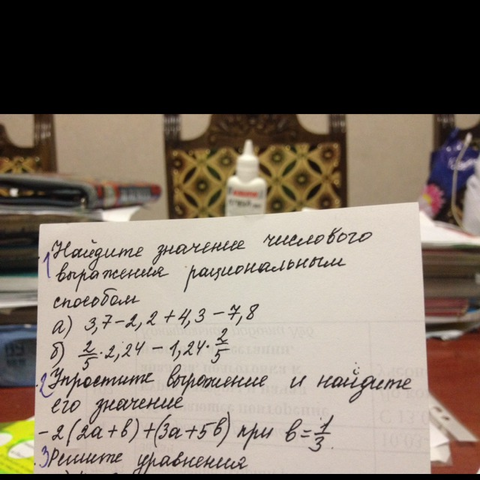 1 Найдите значение числового
выражения рациональным
способом
а) 3,7-2,2+4,3-7,8
б) 2/5·2,24-1,24·2/5
2 Упростить выражение и найдите
его значение
-2(2a+b)+(3a+5b) при b=1/3.
3 Решите уравнения